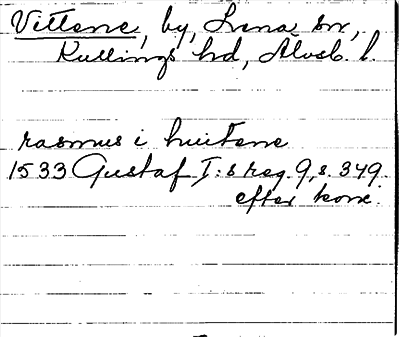 Vittene, by, Lrena sn,
Kullings hd, Älvsb. l.
rasmus i huitene
1533 Gustaf I:s reg. 9, s. 349.
efter konc.